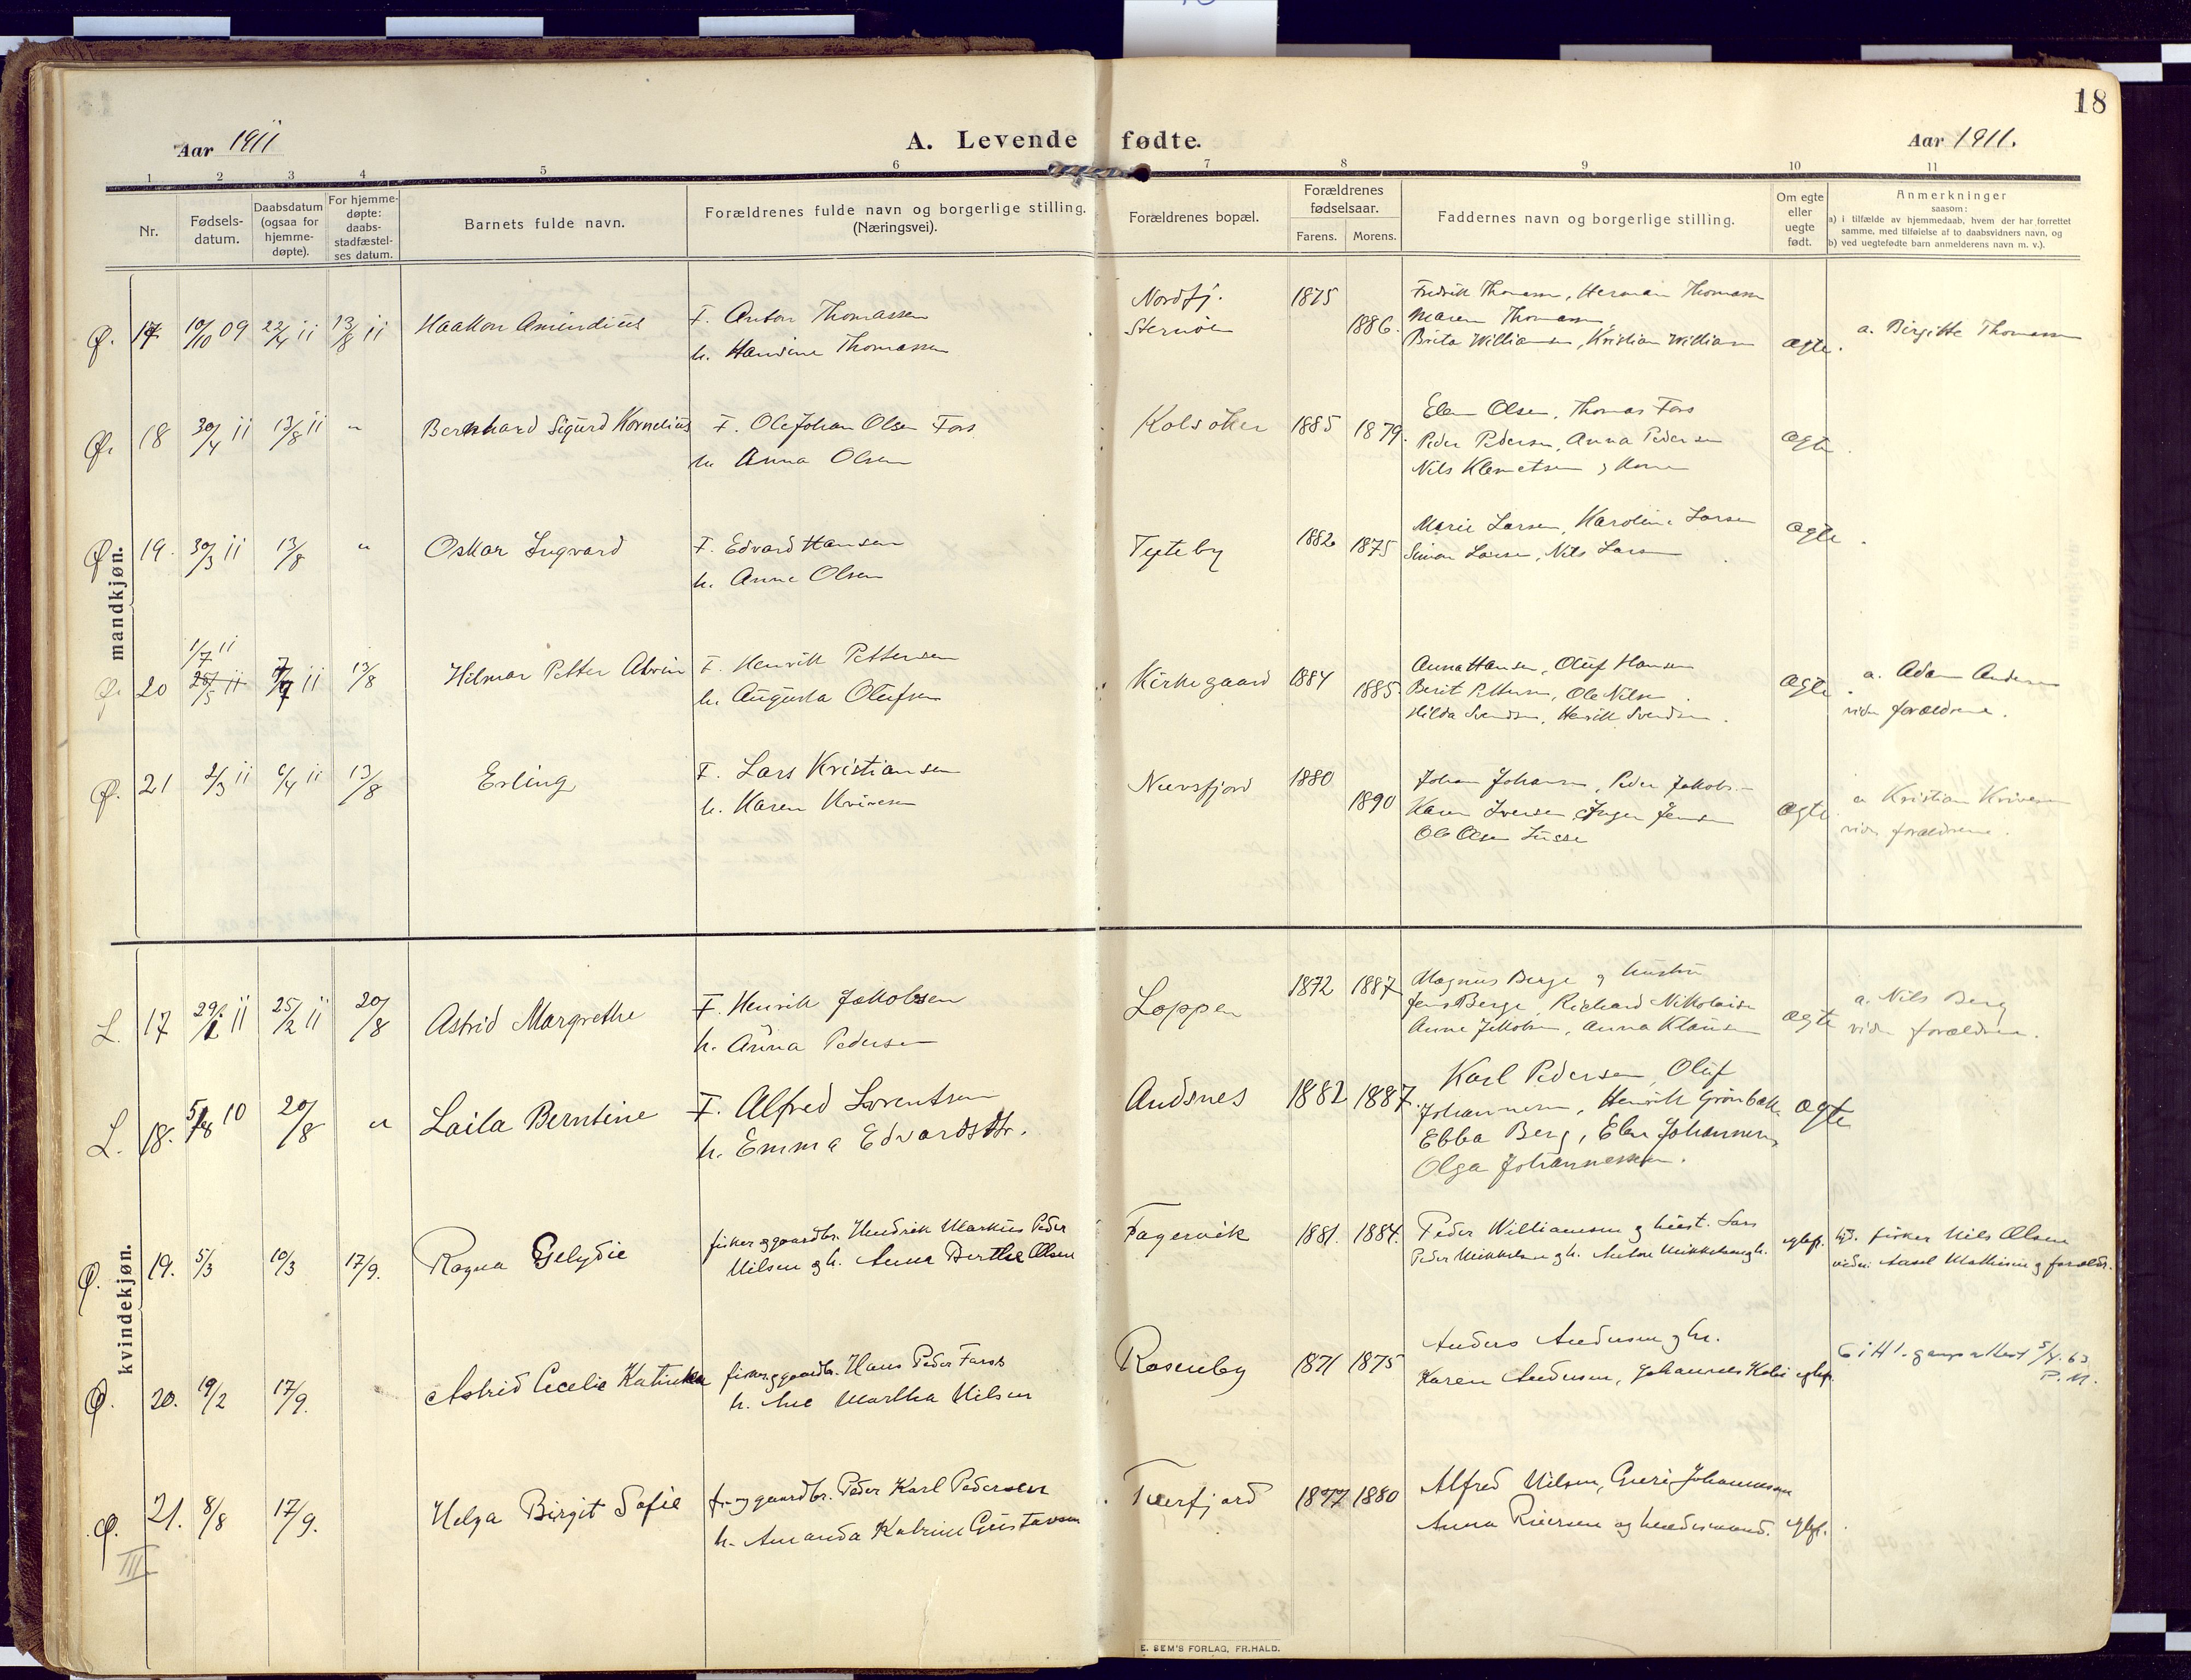 18
Aar 1911
A. Levende fødte.
Aar 1911.
1 2 3 4 5 6 7 8 9 10 11
Nr.
Fødsels-
datum.
Daabsdatum
(ogsaa for
hjemme-
døpte).
For hjemme-
døpte:
daabs-
stadfæstel-
ses datum.
Barnets fulde navn.
Forældrenes fulde navn og borgerlige stilling.
(Næringsvei).
Forældrenes bopæl.
Forældrenes
fødselsaar.
Farens. Morens.
Faddernes navn og borgerlige stilling.
Om egte
eller
uegte
født.
Anmerkninger
saasom:
a) i tilfælde av hjemmedaab, hvem der har forrettet
samme, med tilføielse af to daabsvidners navn, og
b) ved uegtefødte barn anmelderens navn m. v.).
mandkjøn.
Ø. 17 10/10 09 22/4 11 13/8 11 Haakon Amindius
F. Anton Thomassen
h. Hansine Thomassen
Nordfj.
Sternöen
1875 1886.
Fredrik Thomassen, Herman Thomassen
Maren Thomassen
Brita Williamsen, Kristian William
ægte.
a. Birgitte Thomassen
Ø. 18 30/4 11 13/8 11 " Bernhard Sigurd Kornelius
F. Ole Johan Olsen Fors
h. Anna Olsen
Kolsöker 1885 1879.
Elen Olsen, Thomas Fors
Peder Pedersen, Anna Pedersen
Nils Klemetsen & Kone
ægte.
Ø. 19. 30/3 11 13/8 " Oskar Ingvard
F. Edvard Hansen
h. Anne Olsen
Tyteby 1882 1875
Marie Larsen, Karoline Larsen
Simon Larsen, Nils Larsen
ægte.
1/7 11
Ø. 20 28/5 11 7/7 11 13/8 Hilmar Petter Alvin
F. Henrik Pettersen
h. Augusta Olufsen
Kirkegaard 1884 1885
Anna Hansen, Oluf Hansen
Berit Pettersen, Ole Nilsen
Hilda Svendsen, Henrik Svendsen.
ægte.
a. Adam Andersen
vidn forældrene.
Ø. 21 2/3 11 6/4 11 13/8 Erling
F. Lars Kristiansen
h. Karen Kvivesen
Nuvsfjord 1880 1890
Johan Johansen, Peder Jakobs.
Karen Iversen, Inger Jensen
Ole Olsen Lusse
ægte.
a. Kristian Kvivesen
vidn forældrene.
kvindekjøn.
L. 17 29/1 11 25/2 11 20/8 Astrid Margrethe
F. Henrik Jakobsen
h. Anna Pedersen
Loppen 1872 1887
Magnus Berge & hustru
Jens Berge, Richard Nikolaisen
Anne Jakobsen, Anna Klausen
ægte
a. Nils Berg
vidn forældrene.
L. 18. 5/8 10 20/8 " Laila Berntine
F. Alfred Lorentsen
h. Emma Edvardsdtr.
Andsnes 1882 1887.
Karl Pedersen, Oluf
Johannesen, Henrik Grönbæk
Ebba Berg, Elen Johannesen,
Olga Johannessen.
ægte
Ø. 19. 5/3 10/3 17/9. Ragna Gelydie
fisker og gaardbr. Hendrik Markus Peder
Nilsen og h. Anna Berthe Olsen
Fagervik 1881. 1884.
Peder Williamsen og hust. Lars
Peder Mikkelsen og h. Anton Mikkelsen og h.
egtef.
Hjd. fisker Nils Olsen
vidn: Aasel Mathisen og forældr.
Ø. 20. 19/2 17/9. Astrid Cecelie Katinka
fisker og gaardbr. Hans Peder Farsts
h. Ane Martha Nilsen
Rosenby 1871 1875
Anders Andersen og hr.
Karen Andersen, Johannes Kolsö
egtef.
5/4. 63
P. M.
Ø. 21. 8/8 17/9. Helga Birgit Sofie
f. og gaardbr. Peder Karl Pedersen
h. Amanda Katrine Gustavsen
Tverfjord 1877 1880
Alfred Nilsen, Guri Johannessen
Anna Riersen og hendes mand.
egtef.
III
E. SEM'S FORLAG, FR.HALD.